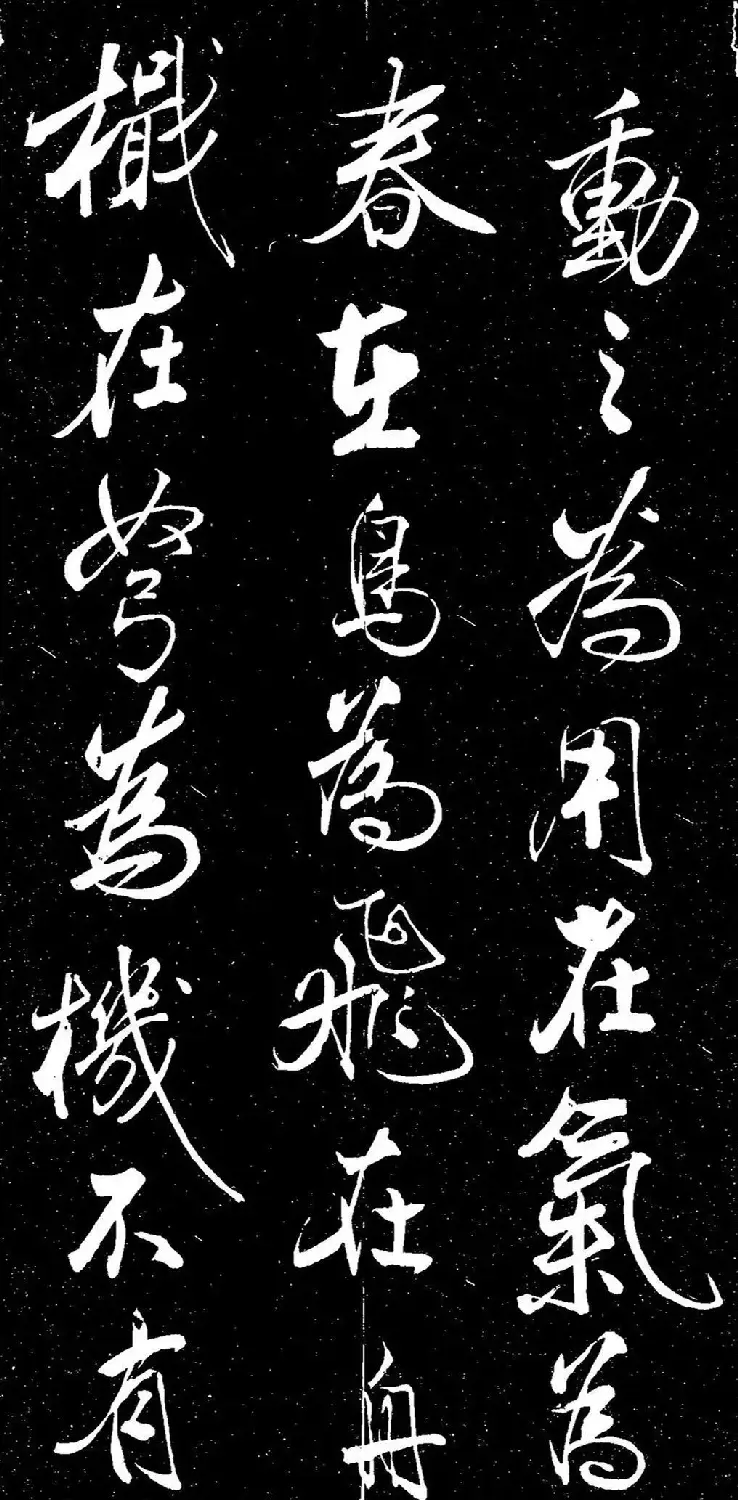 動之為用在氣為
春在鳥為飛在舟
檝在弩為機不有